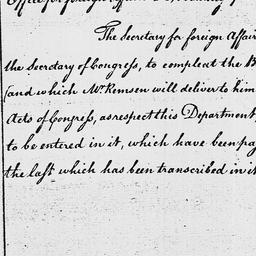 Office for foreign Affairs
The Secretary for foreign Affair
the Secretary of Congress, to compleat the B
(and which Mr. Remsen will deliver to him
Acts of Congress, as respect this Department,
to be entered in it, which have been pa
the last which has been transcribed in it